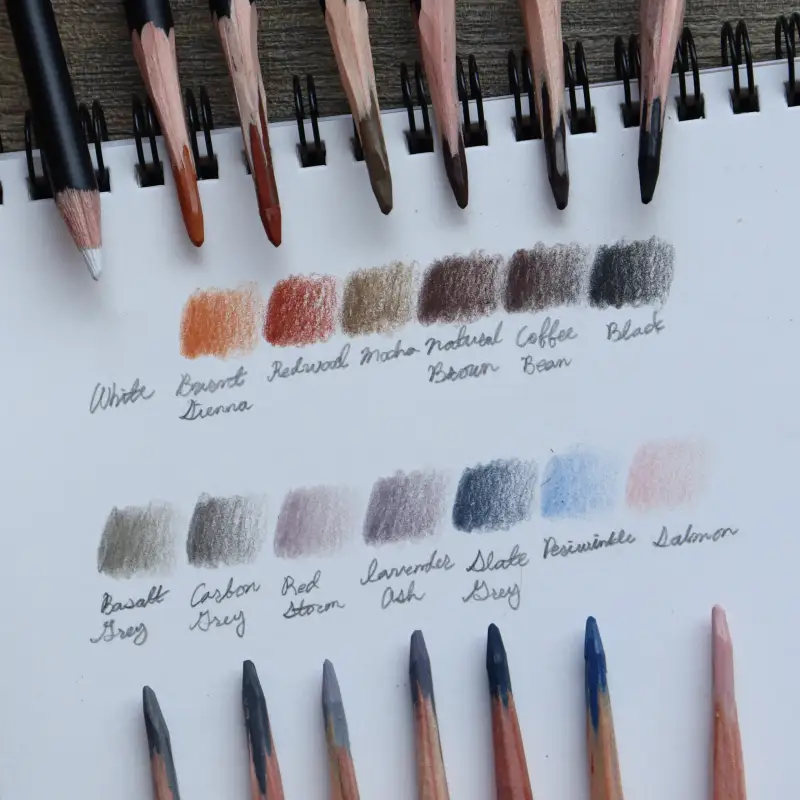 White
Burnt
Sienna
Redwood
Mocha
Natural
Brown
Coffee
Bean
Black
Basalt
Grey
Carbon
Grey
Red
Storm
Lavender
Ash
Slate
Grey
Periwinkle
Salmon